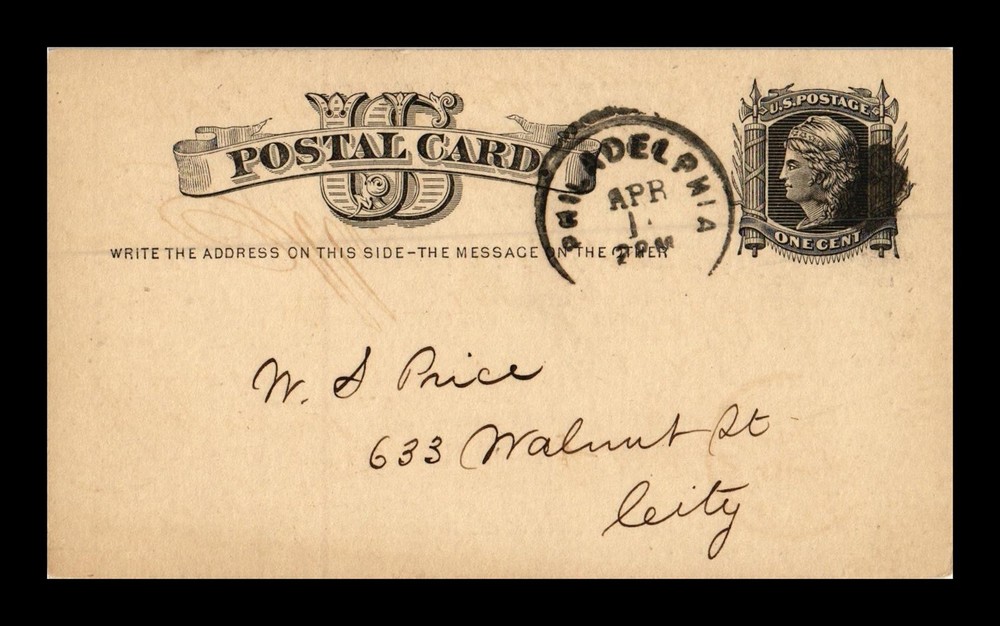 US
POSTAL CARD
U.S. POSTAGE
ONE CENT
PHILADELPHIA
APR
2 PM
WRITE THE ADDRESS ON THIS SIDE-THE MESSAGE ON THE OTHER
W. S Price
633 Walnut St
City